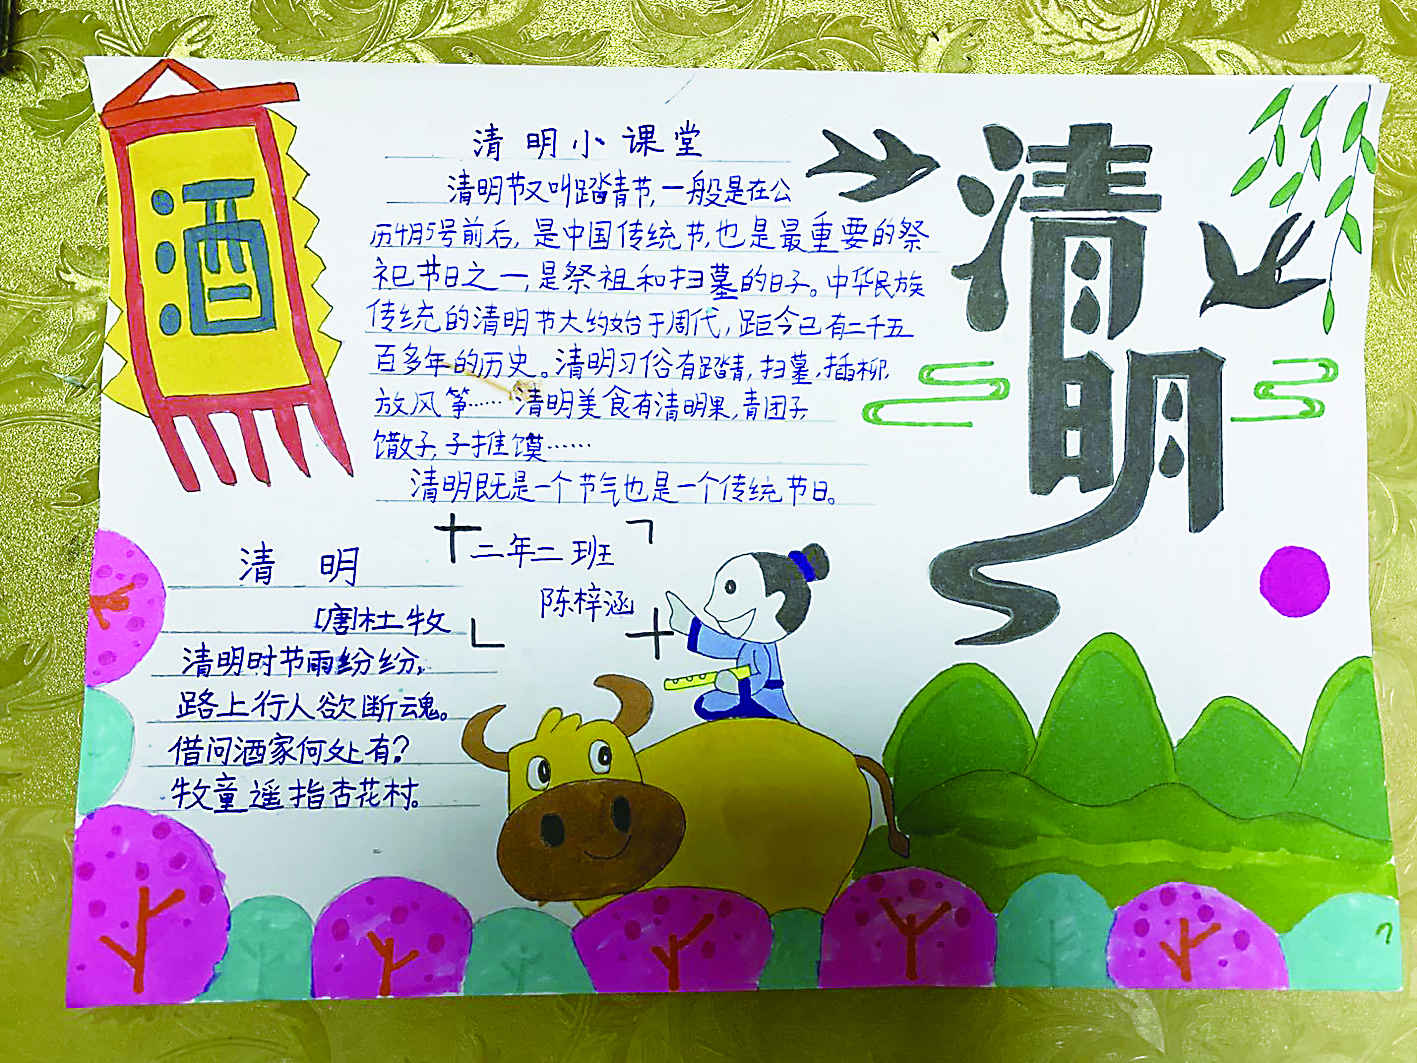 酒
清明
清明小课堂
清明节又叫踏青节,一般是在公
历4月5号前后,是中国传统节,也是最重要的祭
祀节日之一,是祭祖和扫墓的日子。中华民族
传统的清明节大约始于周代,距今已有二千五
百多年的历史。清明习俗有踏青,扫墓,插柳,
放风筝……清明美食有清明果,青团子
馓子,子推馍……
清明既是一个节气也是一个传统节日。
二年二班
陈梓涵
清明
[唐]杜牧
清明时节雨纷纷,
路上行人欲断魂。
借问酒家何处有?
牧童遥指杏花村。